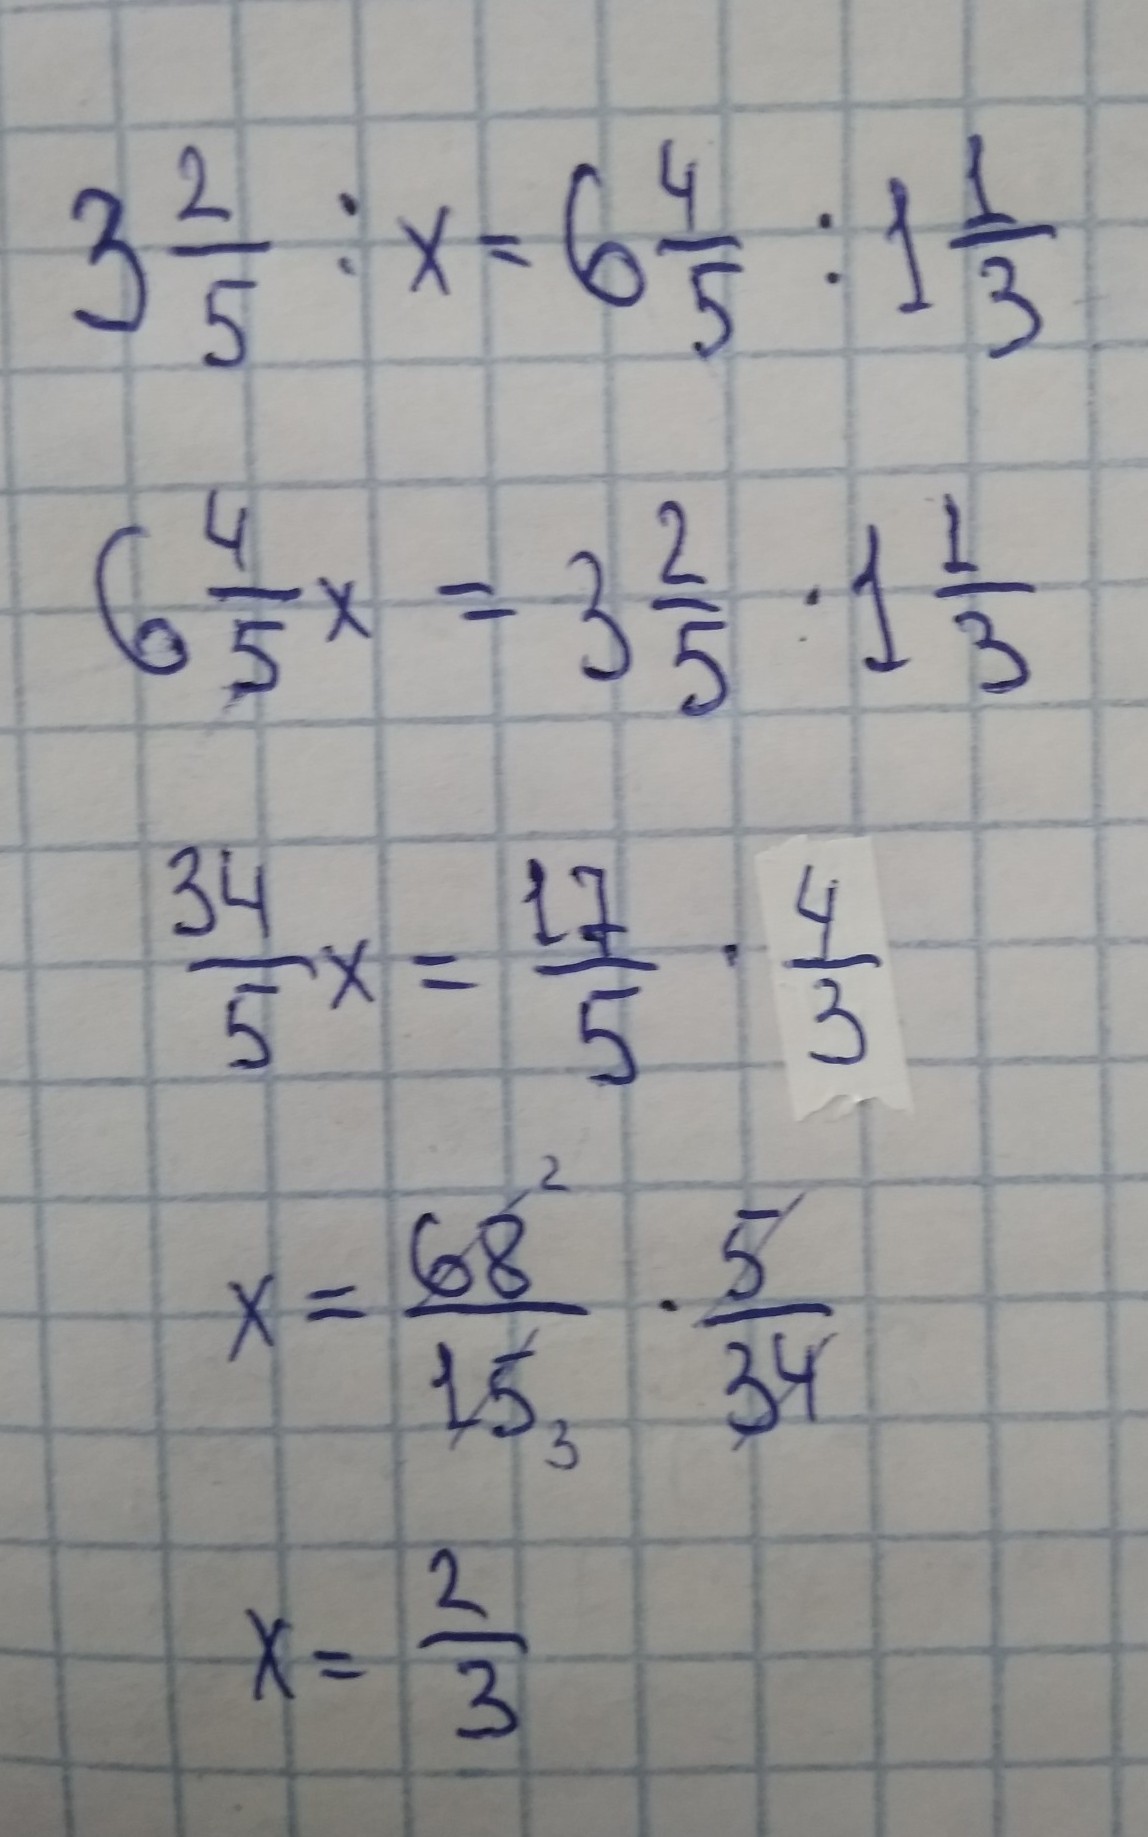 3 2/5 : x = 6 4/5 : 1 1/3
6 4/5 x = 3 2/5 · 1 1/3
34/5 x = 17/5 · 4/3
x = 68 2/15 3 · 5/34
x = 2/3